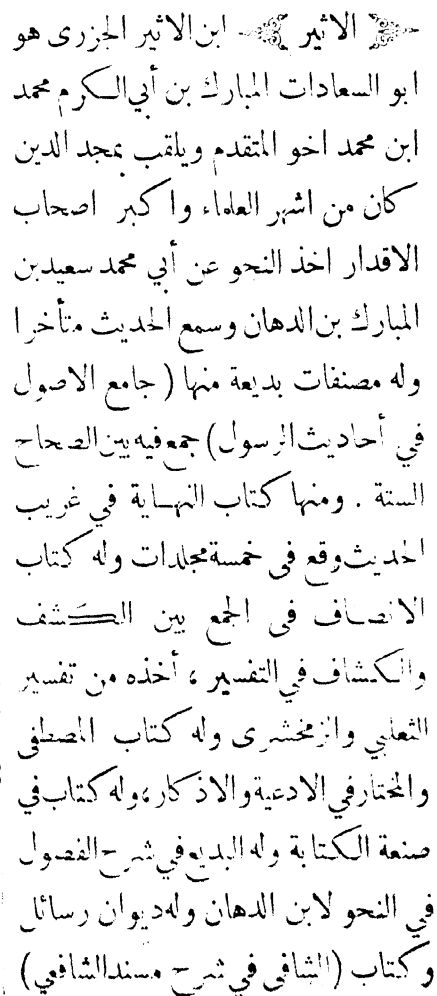 ﴿ الاثير ﴾ ابن الاثير الجزرى هو
ابو السعادات المبارك بن أبي الكرم محمد
ابن محمد اخو المتقدم ويلقب بمجد الدين
كان من اشهر العلماء واكبر اصحاب
الاقدار اخذ النحو عن أبي محمد سعيد بن
المبارك بن الدهان وسمع الحديث متأخرا
وله مصنفات بديعة منها ( جامع الاصول
في أحاديث الرسول) جمع فيه بين الصحاح
الستة . ومنها كتاب النهاية في غريب
الحديث وقع فى خمسة مجلدات وله كتاب
الانصاف فى الجمع بين الكشف
والكشاف في التفسير ، أخذه من تفسير
الثعلبي والزمخشرى وله كتاب المصطفى
والمختار في الادعية والاذكار ، وله كتاب في
صنعة الكتابة وله البديع في شرح الفصول
في النحو لابن الدهان وله ديوان رسائل
وكتاب (الشافى في شرح مسند الشافعي)